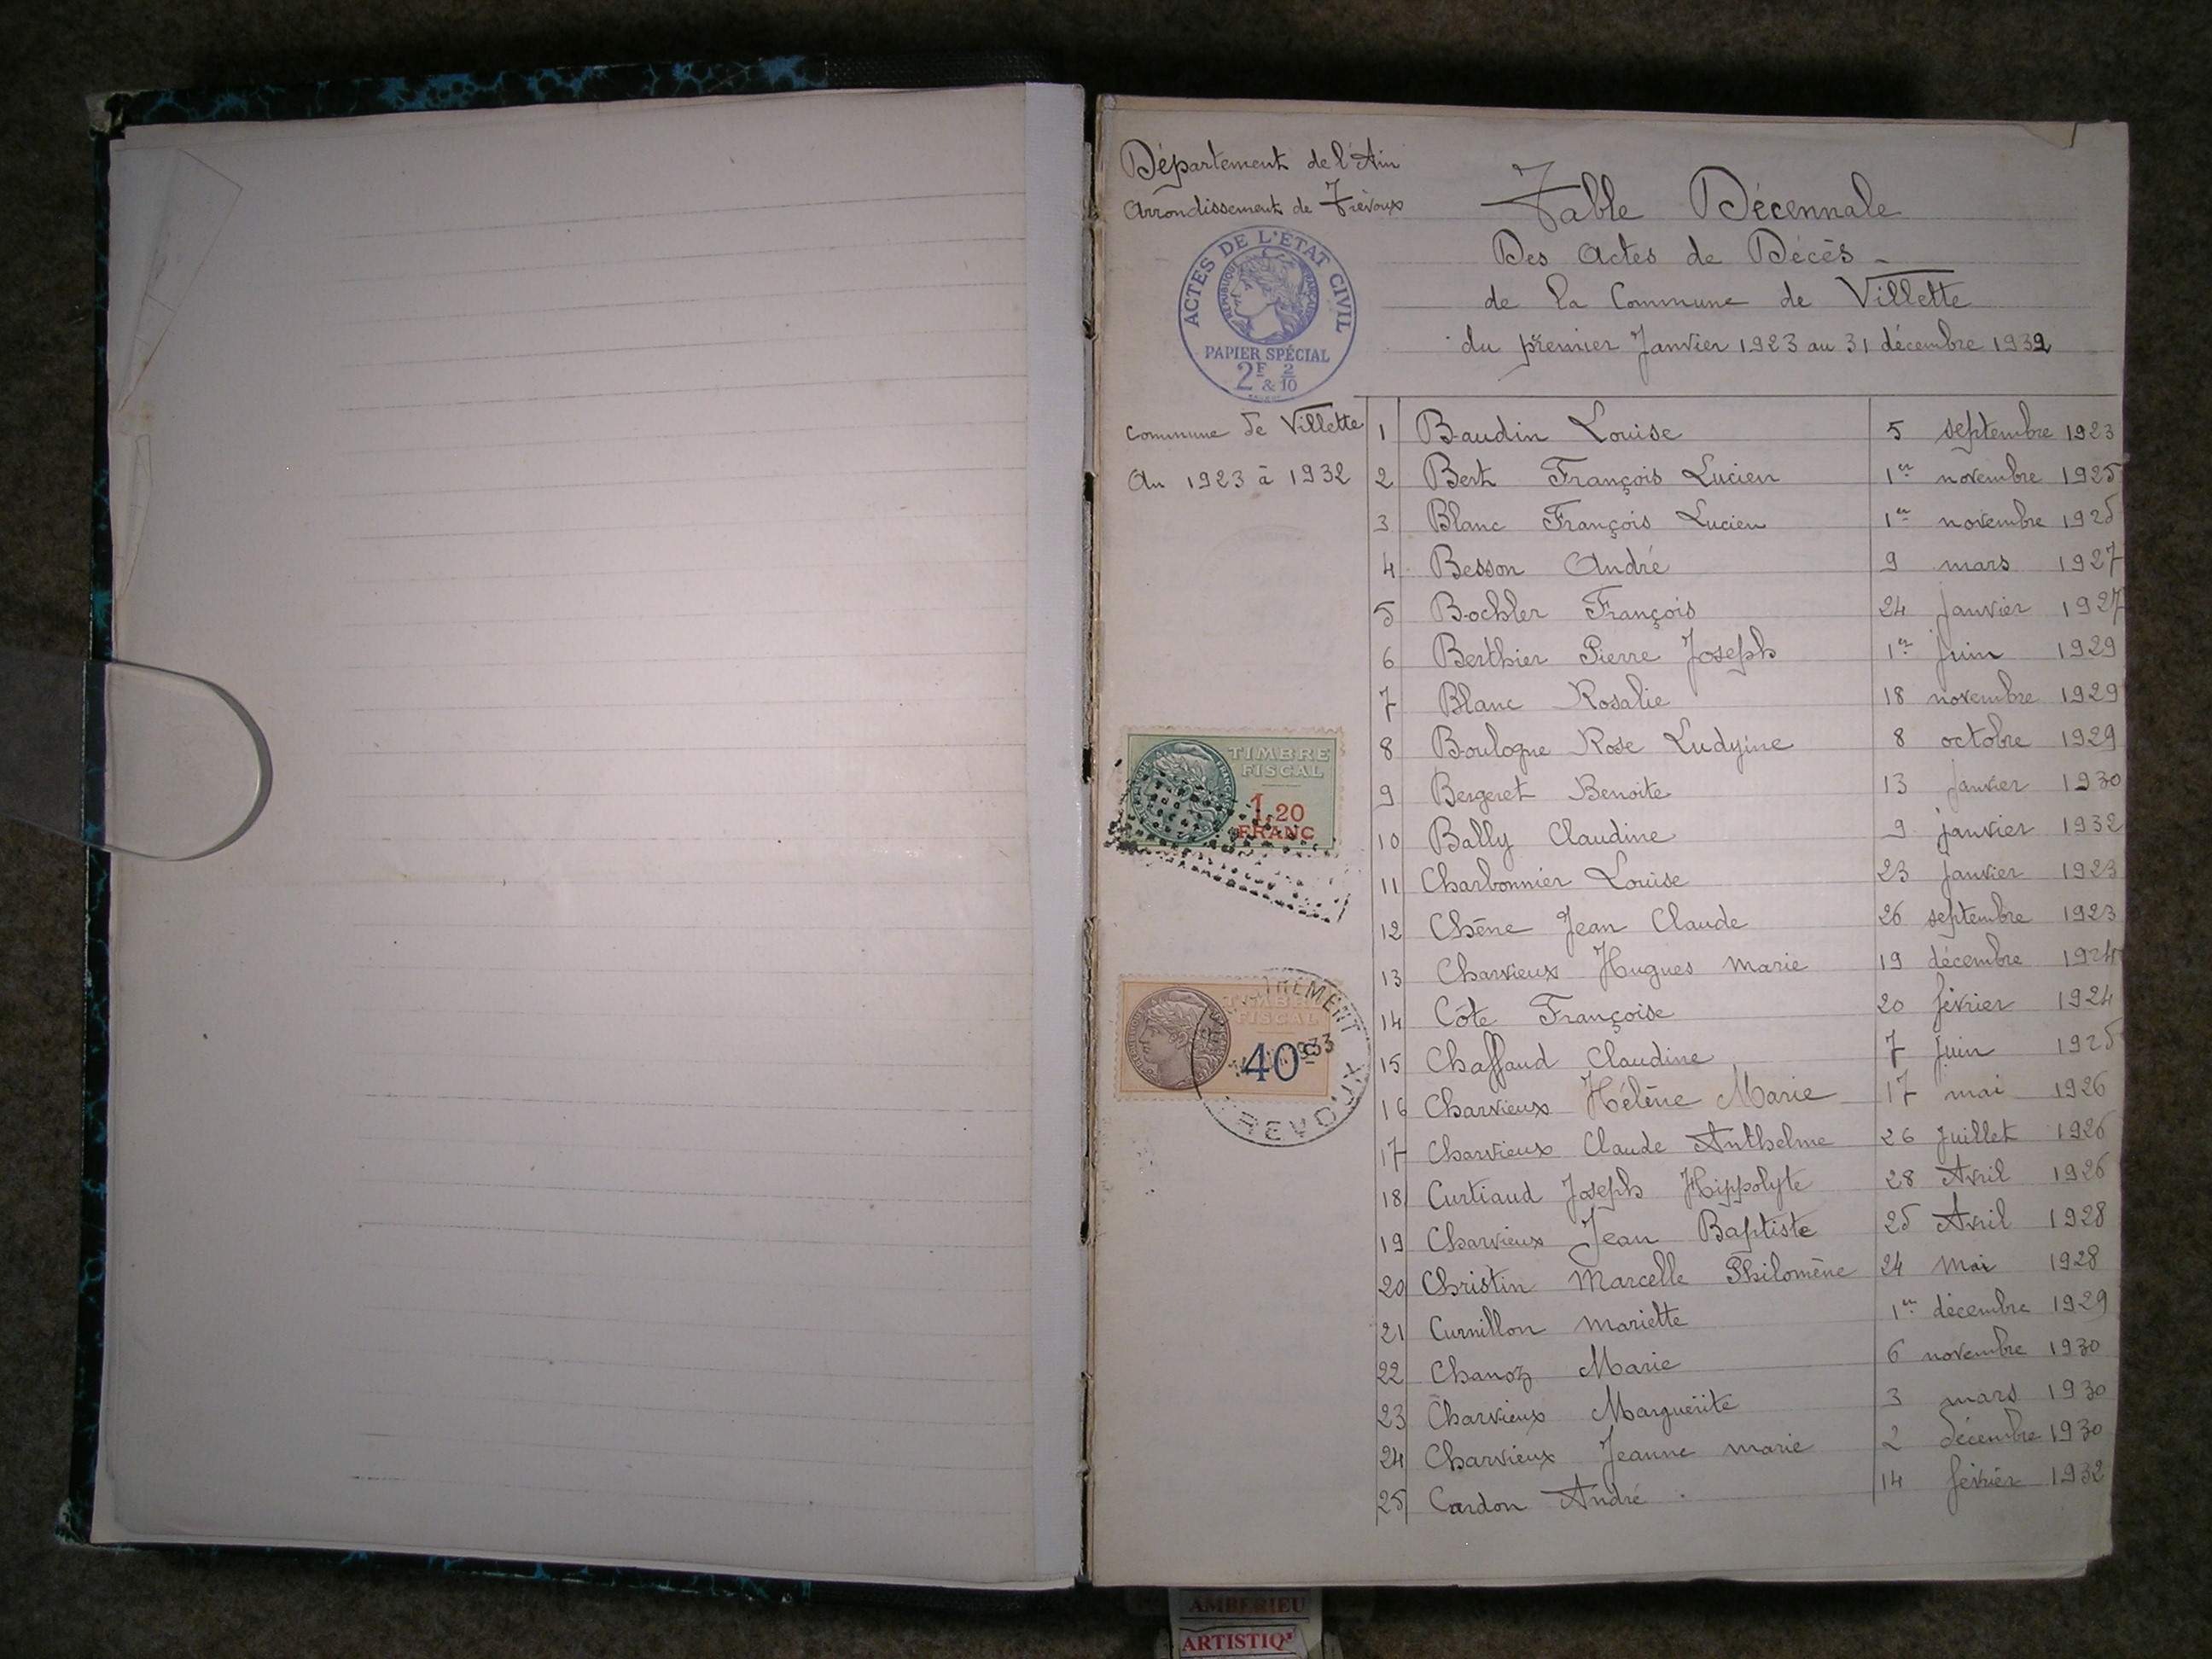 Département de l'Ain
Arrondissement de Trévoux
Table Décennale
Des Actes de Décès -
de la Commune de Villette
du premier Janvier 1923 au 31 décembre 1932
ACTES DE L'ÉTAT CIVIL
RÉPUBLIQUE FRANÇAISE
PAPIER SPÉCIAL
2F & 2/10
Commune de Villette
An 1923 à 1932
1 Baudin Louise 5 septembre 1923
2 Bert François Lucien 1er novembre 1925
3 Blanc François Lucien 1er novembre 1925
4 Besson André 9 mars 1927
5 Bochler François 24 janvier 1927
6 Berthier Pierre Joseph 1er juin 1929
7 Blanc Rosalie 18 novembre 1929
8 Boulogne Rose 8 octobre 1929
9 Bergeret Benoite 13 janvier 1930
10 Bally Claudine 9 janvier 1932
11 Charbonnier Louise 23 janvier 1923
12 Chêne Jean Claude 26 septembre 1923
13 Charvieux Hugues Marie 19 décembre 1924
14 Côte Françoise 20 février 1924
15 Chaffaud Claudine 7 juin 1925
16 Charvieux Hélène Marie 17 mai 1926
17 Charvieux Claude Anthelme 26 juillet 1926
18 Curtiaud Joseph Hippolyte 28 Avril 1926
19 Charvieux Jean Baptiste 25 Avril 1928
20 Christin Marcelle Philomène 24 Mai 1928
21 Curnillon Mariette 1er décembre 1929
22 Chanoz Marie 6 novembre 1930
23 Charvieux Marguerite 3 mars 1930
24 Charvieux Jeanne Marie 2 décembre 1930
25 Cardon André 14 février 1932
TIMBRE
FISCAL
1,20
FRANC
TIMBRE
FISCAL
40c
1933
TREVOUX
AMBERIEU
ARTISTIQ